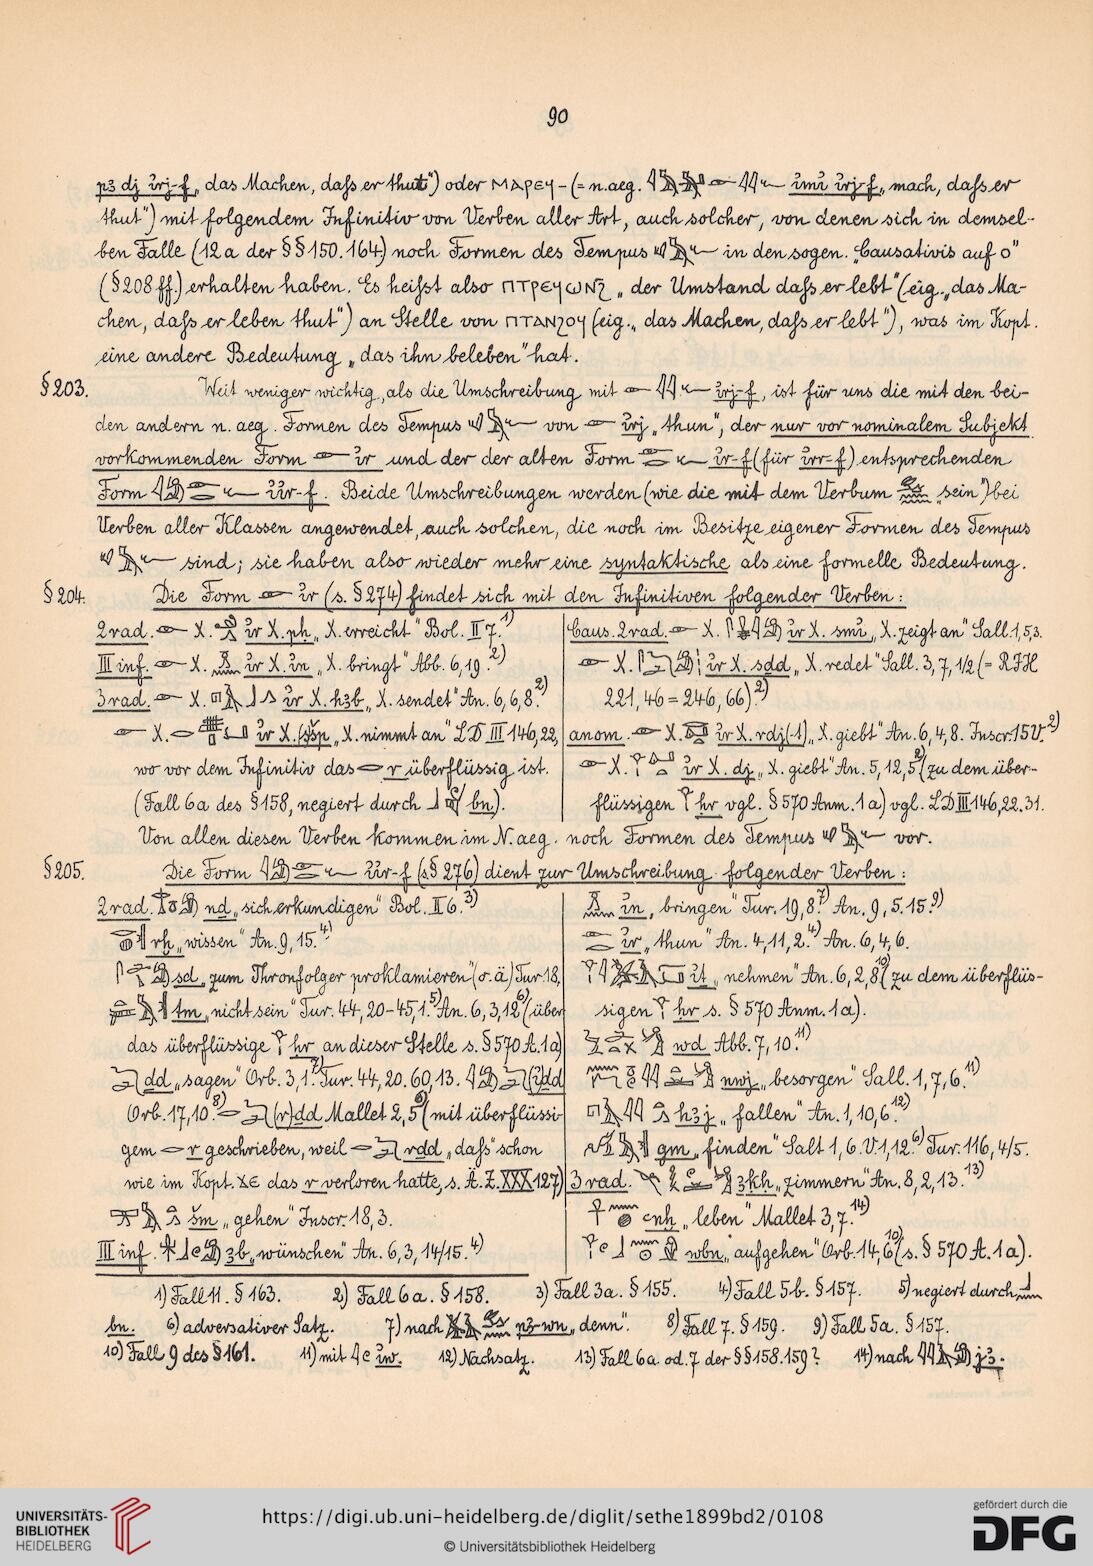 90
pꜣ dj ı͗rj-f „das Machen, daſs er thut“) oder ⲙⲁⲣⲉϥ- (= n.aeg. ı͗mı͗ ı͗rj-f „mach, daſs er
thut“) mit folgendem Infinitiv von Verben aller Art, auch solcher, von denen sich in demsel-
ben Falle (12a der §§150.164) noch Formen des Tempus in den sogen. „Causativis auf o“
(§208ff.) erhalten haben. Es heiſst also ⲡⲧⲣⲉϥⲱⲛϩ „der Umstand daſs er lebt“ (eig. „das Ma-
chen, daſs er leben thut“) an Stelle von ⲡⲧⲁⲛϩⲟϥ (eig. „das Machen, daſs er lebt“), was im Kopt.
eine andere Bedeutung „das ihn beleben“ hat.
§203. Weit weniger wichtig, als die Umschreibung mit ı͗rj-f, ist für uns die mit den bei-
den andern n.aeg. Formen des Tempus von ı͗rj „thun“, der nur vor nominalem Subjekt
vorkommenden Form ı͗r und der der alten Form ı͗r-f (für ı͗rr-f) entsprechenden
Form ı͗ı͗r-f. Beide Umschreibungen werden (wie die mit dem Verbum „sein“) bei
Verben aller Klassen angewendet, auch solchen, die noch im Besitze eigener Formen des Tempus
sind; sie haben also wieder mehr eine syntaktische als eine formelle Bedeutung.
§204. Die Form ı͗r (s. §274) findet sich mit den Infinitiven folgender Verben:
2rad. X. ı͗r X. pḥ „X. erreicht“ Bol. II 7.1)
III inf. X. ı͗r X. ı͗n „X. bringt“ Abb. 6,19.2)
3rad. X. ı͗r X. hꜣb „X. sendet“ An. 6,6,8.2)
X. ı͗r X. šsp „X. nimmt an“ LD III 146,22,
wo vor dem Infinitiv das r überflüssig ist.
(Fall 6a des §158, negiert durch bn).
Caus. 2rad. X. ı͗r X. smı͗ „X. zeigt an“ Sall. 1,5,3.
X. ı͗r X. sdd „X. redet“ Sall. 3,7,1/2 (= RIH
221,46 = 246,66).2)
anom. X. ı͗r X. rdj(-t) „X. giebt“ An. 6,4,8. Inscr. 15 V.2)
X. ı͗r X. dj „X. giebt“ An. 5,12,5 2) (zu dem über-
flüssigen ḥr vgl. §570 Anm. 1a) vgl. LD III 146,22.31.
Von allen diesen Verben kommen im N.aeg. noch Formen des Tempus vor.
§205. Die Form ı͗ı͗r-f (s. §276) dient zur Umschreibung folgender Verben:
2rad. nd „sich erkundigen“ Bol. II 6.3)
rḫ „wissen“ An. 9,15.4)
sd „zum Thronfolger proklamieren“ (o.ä.) Tur. 18,
tm „nicht sein“ Tur. 44,20-45,1.5) An. 6,3,12 6) (über
das überflüssige ḥr an dieser Stelle s. §570 A. 1a)
dd „sagen“ Orb. 3,1.7) Tur. 44,20. 60,13. (ı͗)dd
Orb. 17,10.8) (r)dd Mallet 2,5 9) (mit überflüssi-
gem r geschrieben, weil rdd „daſs“ schon
wie im Kopt. ϫⲉ das r verloren hatte, s. Ä.Z. XXX 127)
šm „gehen“ Inscr. 18,3.
III inf. ꜣb „wünschen“ An. 6,3,14/15.4)
ı͗n „bringen“ Tur. 19,8.7) An. 9,5.15.9)
ı͗r „thun“ An. 4,11,2.4) An. 6,4,6.
ı͗t „nehmen“ An. 6,2,8 10) (zu dem überflüs-
sigen ḥr s. §570 Anm. 1a).
wd Abb. 7,10.11)
nwj „besorgen“ Sall. 1,7,6.11)
hꜣj „fallen“ An. 1,10,6.12)
gm „finden“ Salt 1,6. V. 1,12.6) Tur. 116,4/5.
3rad. ꜣkḥ „zimmern“ An. 8,2,13.13)
ꜥnḫ „leben“ Mallet 3,7.14)
wbn „aufgehen“ Orb. 14,6 10) (s. §570 A. 1a).
1) Fall 11. §163. 2) Fall 6a. §158. 3) Fall 3a. §155. 4) Fall 5b. §157. 5) negiert durch
bn. 6) adversativer Satz. 7) nach pꜣ-wn „denn“. 8) Fall 7. §159. 9) Fall 5a. §157.
10) Fall 9 des §161. 11) mit ı͗w. 12) Nachsatz. 13) Fall 6a od. 7 der §§158.159? 14) nach jꜣ.
UNIVERSITÄTS-
BIBLIOTHEK
HEIDELBERG
https://digi.ub.uni-heidelberg.de/diglit/sethe1899bd2/0108
© Universitätsbibliothek Heidelberg
gefördert durch die
DFG